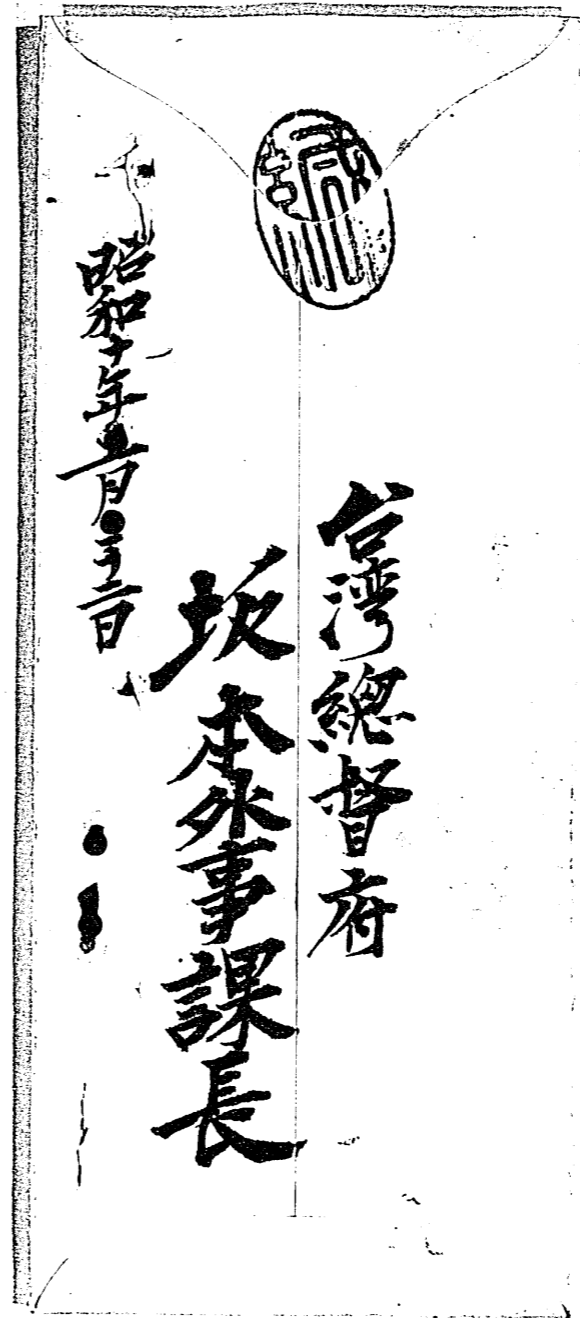 緘
台湾總督府
坂本外事課長
昭和十年五月二十二日